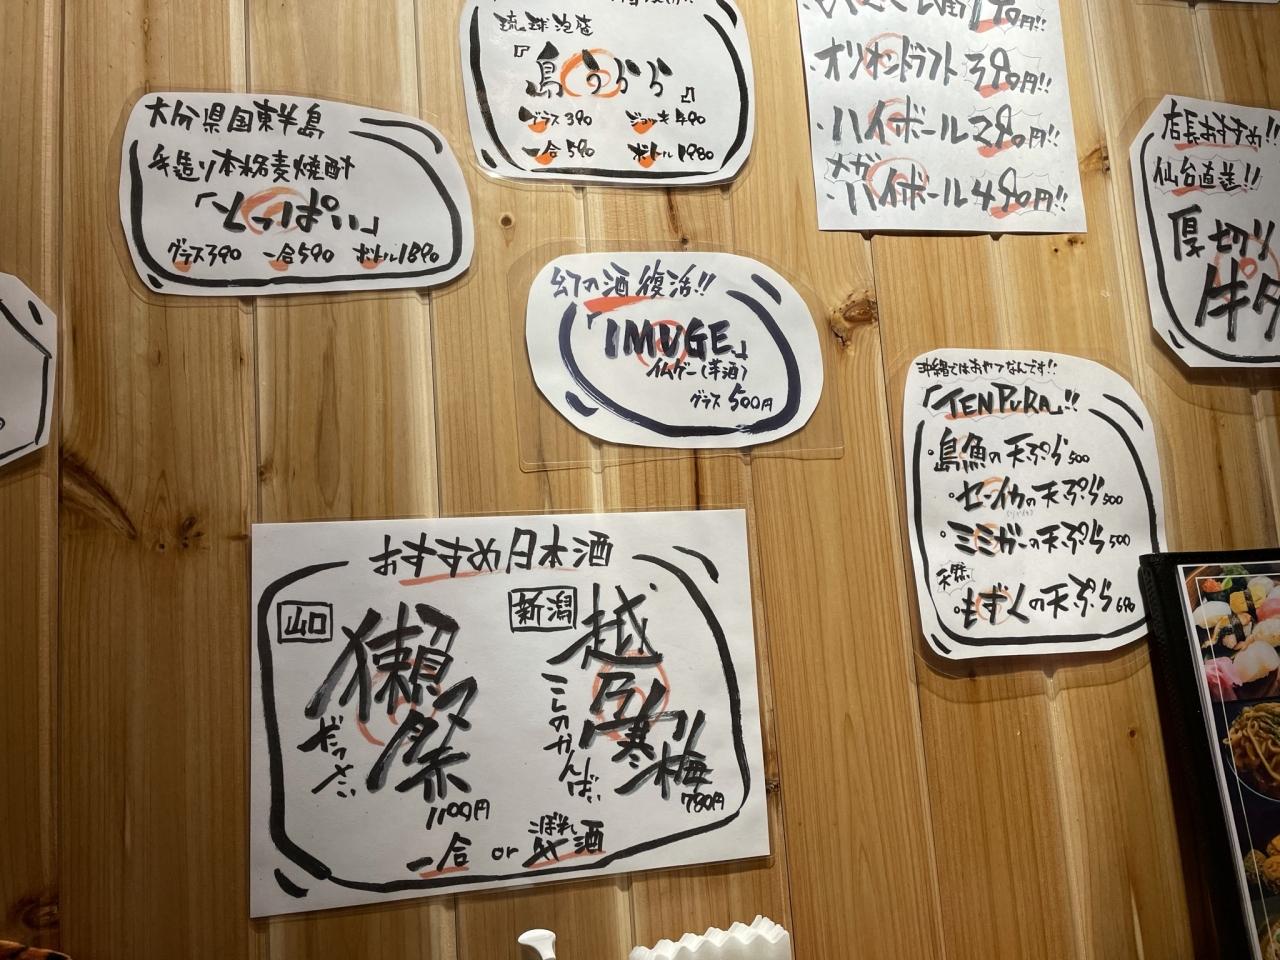 琉球泡盛
『島うらら』
グラス390 ジョッキ490
一合590 ボトル1980
オリオンドラフト390円!!
ハイボール290円!!
メガ
ハイボール490円!!
大分県国東半島
手造り本格麦焼酎
「とっぱい」
グラス390 一合590 ボトル1890
店長おすすめ!!
仙台直送!!
厚切り
牛タ
幻の酒 復活!!
「IMUGE」
イムゲー(芋酒)
グラス 500円
沖縄ではおやつなんです!!
「TENPURA」!!
・島魚の天ぷら500
・セーイカの天ぷら500
・ミミガーの天ぷら500
天然
・もずくの天ぷら690
おすすめ日本酒
山口
獺祭
だっさい
1100円
新潟
越乃寒梅
こしのかんばい
780円
一合 or こぼれし盛酒